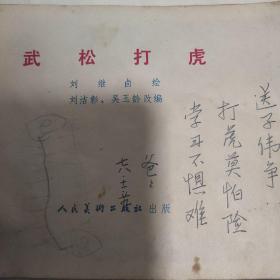 武松打虎
刘继卣绘
刘洁彰，吴玉龄改编
人民美术出版社出版
送子伟争
打虎莫怕险
学习不惧难
爸々